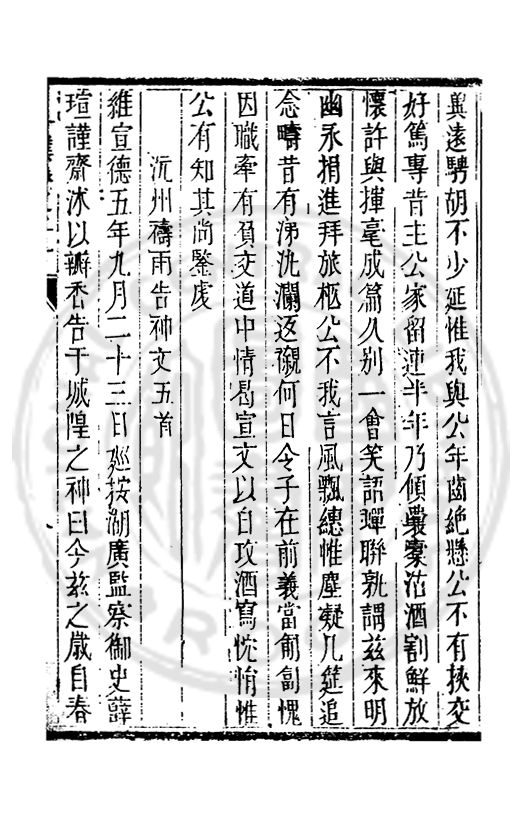 輿遠騁胡不少延惟我與公年齒絶懸公不有挾交
好篤專昔主公家留連半年乃傾囊橐沽酒割鮮放
懷許與揮毫成篇久别一會笑語蟬聯孰謂兹來明
幽永捐進拜旅柩公不我言風飄繐帷塵凝几筵追
念疇昔有涕汍瀾返櫬何日令子在前義當匍匐愧
因職牽有負交道中情曷宣文以自攻酒寫忱悁惟
公有知其尚鑒䖍
沅州禱雨告神文五首
維宣德五年九月二十三日廵按湖廣監察御史薛
瑄謹齋沐以瓣香告于城隍之神曰今兹之歲自春